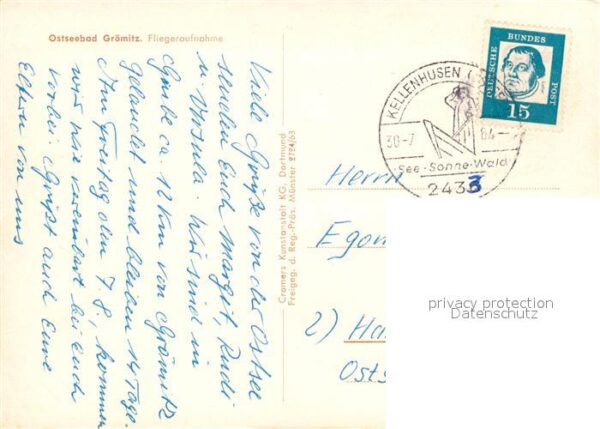 Ostseebad Grömitz. Fliegeraufnahme
Viele Grüße von der Ostsee
senden Euch Margit, Rudi
u. Ursula. Wir sind in
Grube ca. 12 km von Grömitz
gelandet und bleiben 14 Tage.
Am Freitag den 7. 8., kommen
wir wie vereinbart bei Euch
vorbei. Grüßt auch Eure
Eltern von uns
Cramers Kunstanstalt KG. Dortmund
Freigeg. d. Reg.-Präs. Münster 2794/63
KELLENHUSEN (
30-7 64
See·Sonne·Wald
2433
DEUTSCHE BUNDES POST
15
Herrn
Egon
2) Ha
Osts
privacy protection
Datenschutz